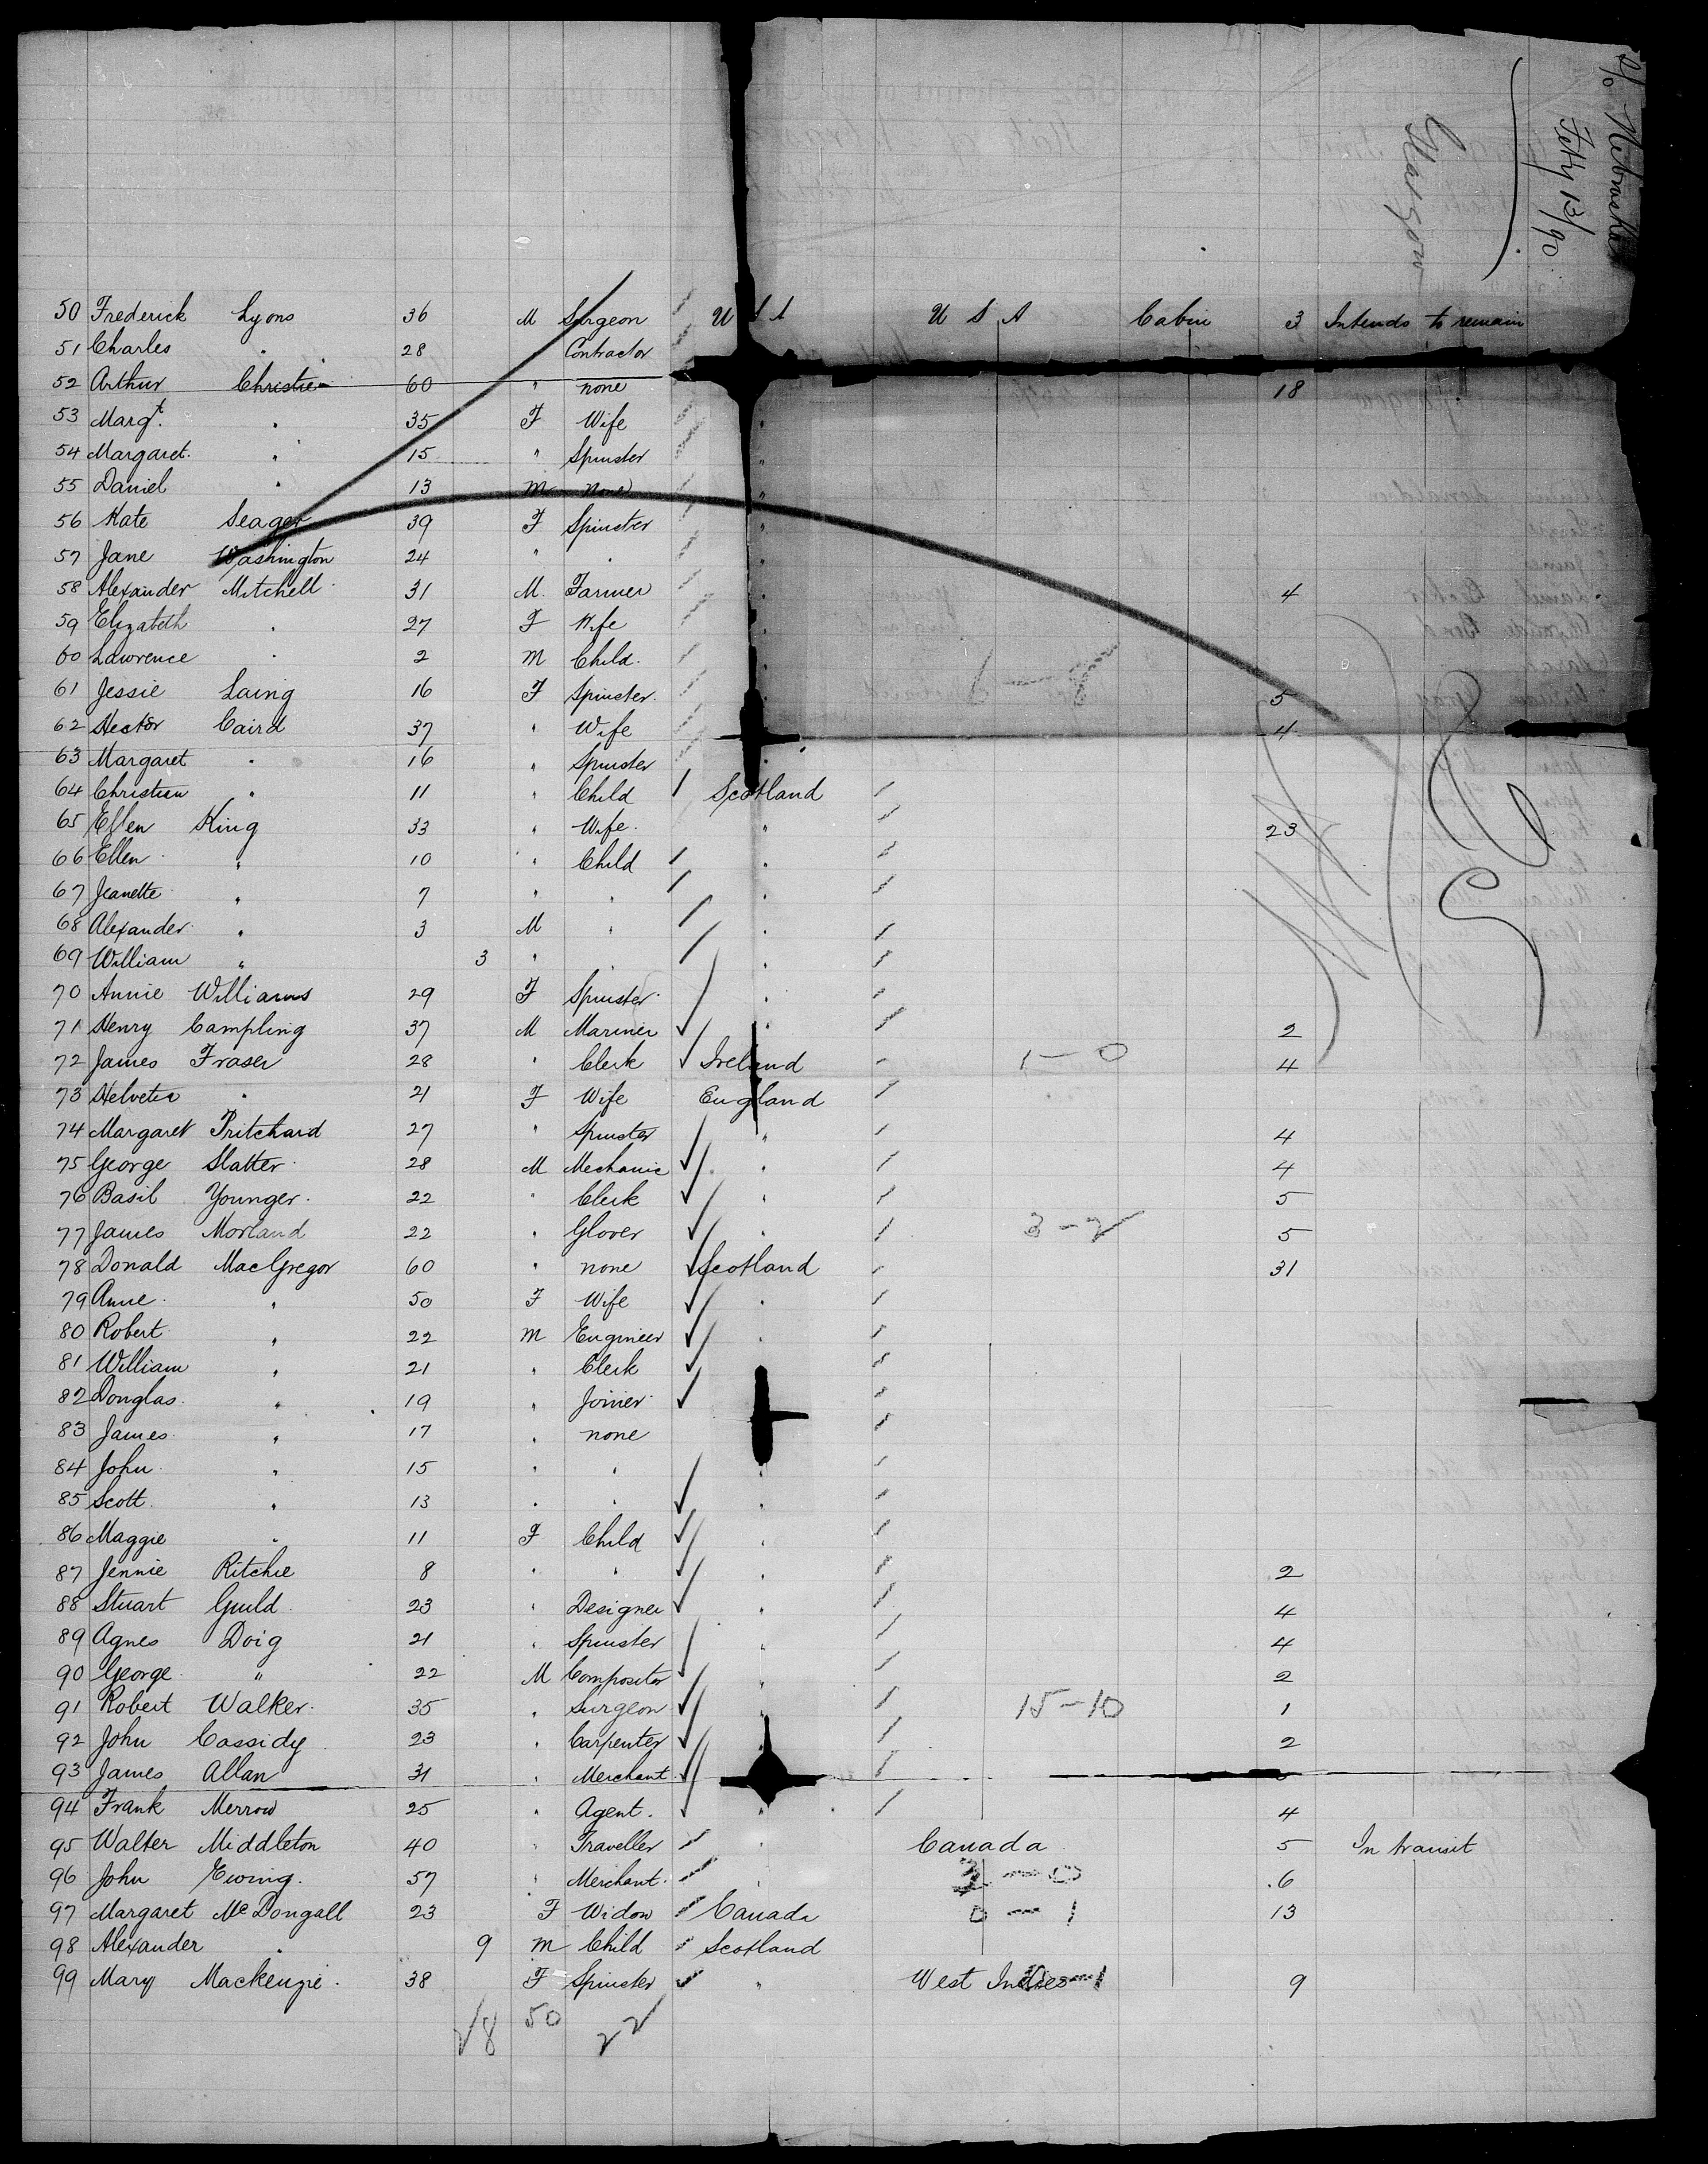 S/S Nebraska
Feby 13/90
Glasgow
50 Frederick Lyons 36 M Surgeon U S A U S A Cabin 3 Intends to remain
51 Charles " 28 Contractor
52 Arthur Christie 60 " none 18
53 Margt. " 35 F Wife "
54 Margaret " 15 " Spinster "
55 Daniel " 13 M none "
56 Kate Seager 39 F Spinster "
57 Jane Washington 24 " " "
58 Alexander Mitchell 31 M. Farmer " 4
59 Elizabeth " 27 F Wife "
60 Lawrence " 2 M Child. "
61 Jessie Laing 16 F Spinster. " 5
62 Hector Caird 37 " Wife 4
63 Margaret " 16 " Spinster
64 Christian " 11 " Child Scotland
65 Ellen King 33 " Wife. " 23
66 Ellen " 10 " Child "
67 Jeanette " 7 " " "
68 Alexander " 3 M " "
69 William " 3 " " "
70 Annie Williams 29 F Spinster "
71 Henry Campling 37 M Mariner " 2
72 James Fraser 28 " Clerk Ireland 1 - 0 4
73 Helvetia " 21 F Wife England
74 Margaret Pritchard 27 " Spinster " 4
75 George Slatter 28 M Mechanic " 4
76 Basil Younger. 22 " Clerk " 5
77 James Morland 22 " Glover " 3 - 2 5
78 Donald MacGregor 60 " none Scotland 31
79 Anne " 50 F Wife "
80 Robert " 22 M Engineer "
81 William " 21 " Clerk "
82 Douglas " 19 " Joiner
83 James " 17 " none
84 John " 15 " " "
85 Scott " 13 " " "
86 Maggie " 11 F Child "
87 Jennie Ritchie 8 " " " 2
88 Stuart Guild 23 " Designer " 4
89 Agnes Doig 21 " Spinster " 4
90 George " 22 M Compositor " 2
91 Robert Walker. 35 " Surgeon 15 - 10 1
92 John Cassidy 23 " Carpenter " 2
93 James Allan 31 " Merchant
94 Frank Merrow 25 " Agent. " 4
95 Walter Middleton 40 " Traveller " Canada 5 In transit
96 John Ewing. 57 " Merchant. " 3 - 0 6
97 Margaret McDongall 23 F Widow Canada 0 - 1 13
98 Alexander " 9 M Child Scotland
99 Mary Mackenzie. 38 F Spinster " West Indies - 1 9
50 22